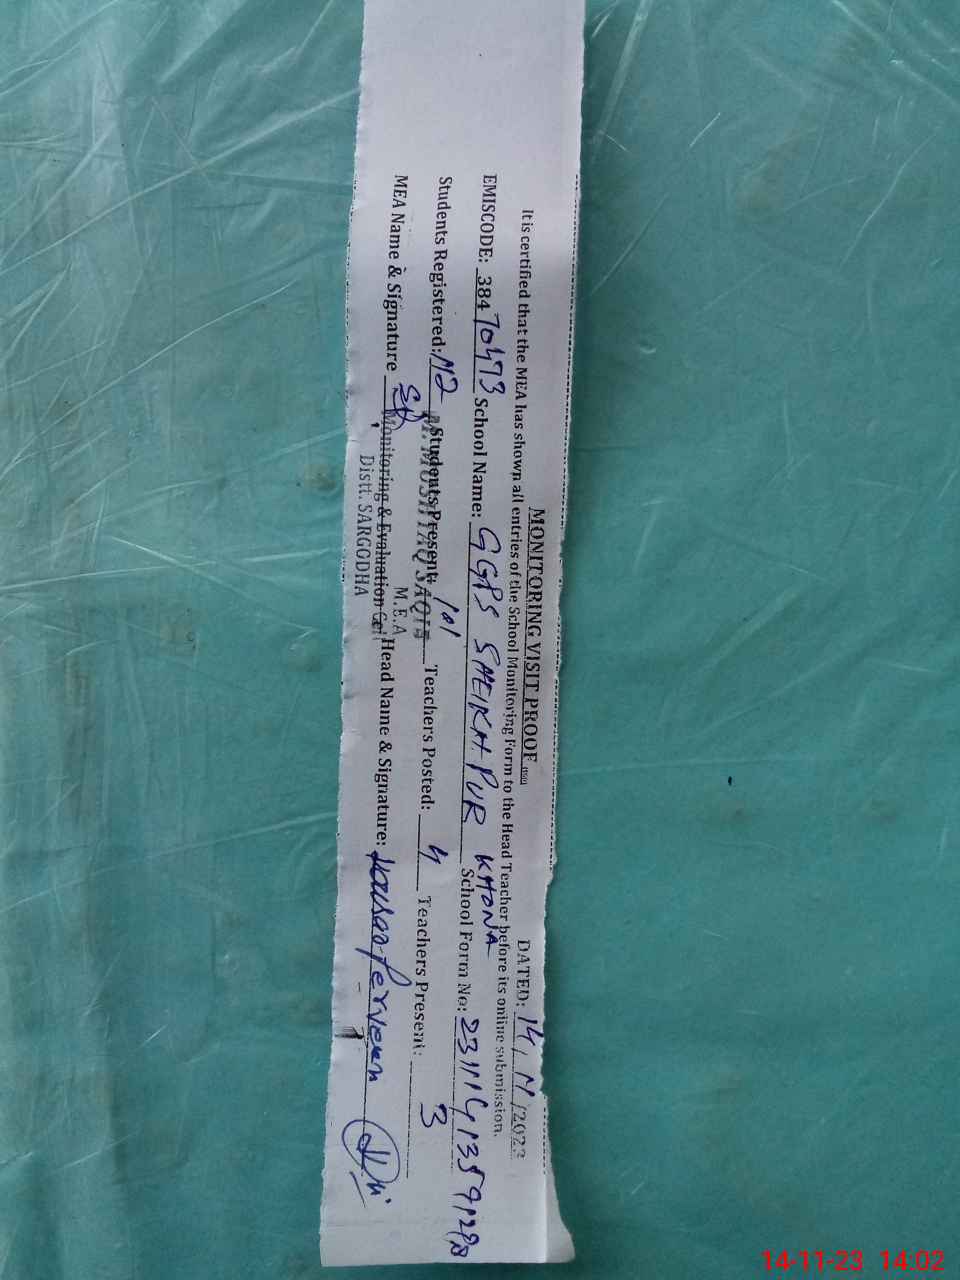 MONITORING VISIT PROOF
DATED: 14, 11 /2023
It is certified that the MEA has shown all entries of the School Monitoring Form to the Head Teacher before its online submission.
EMISCODE: 38470473 School Name: GGPS SHEIKH PUR KHONA School Form No:
Students Registered: 112 Students Present: 101 Teachers Posted: 4 Teachers Present: 3
M. MUSHTAQ SAQIB
M.E.A
MEA Name & Signature Head Name & Signature: Kausar Perveen
Monitoring & Evaluation Cell
Distt. SARGODHA
14-11-23 14:02